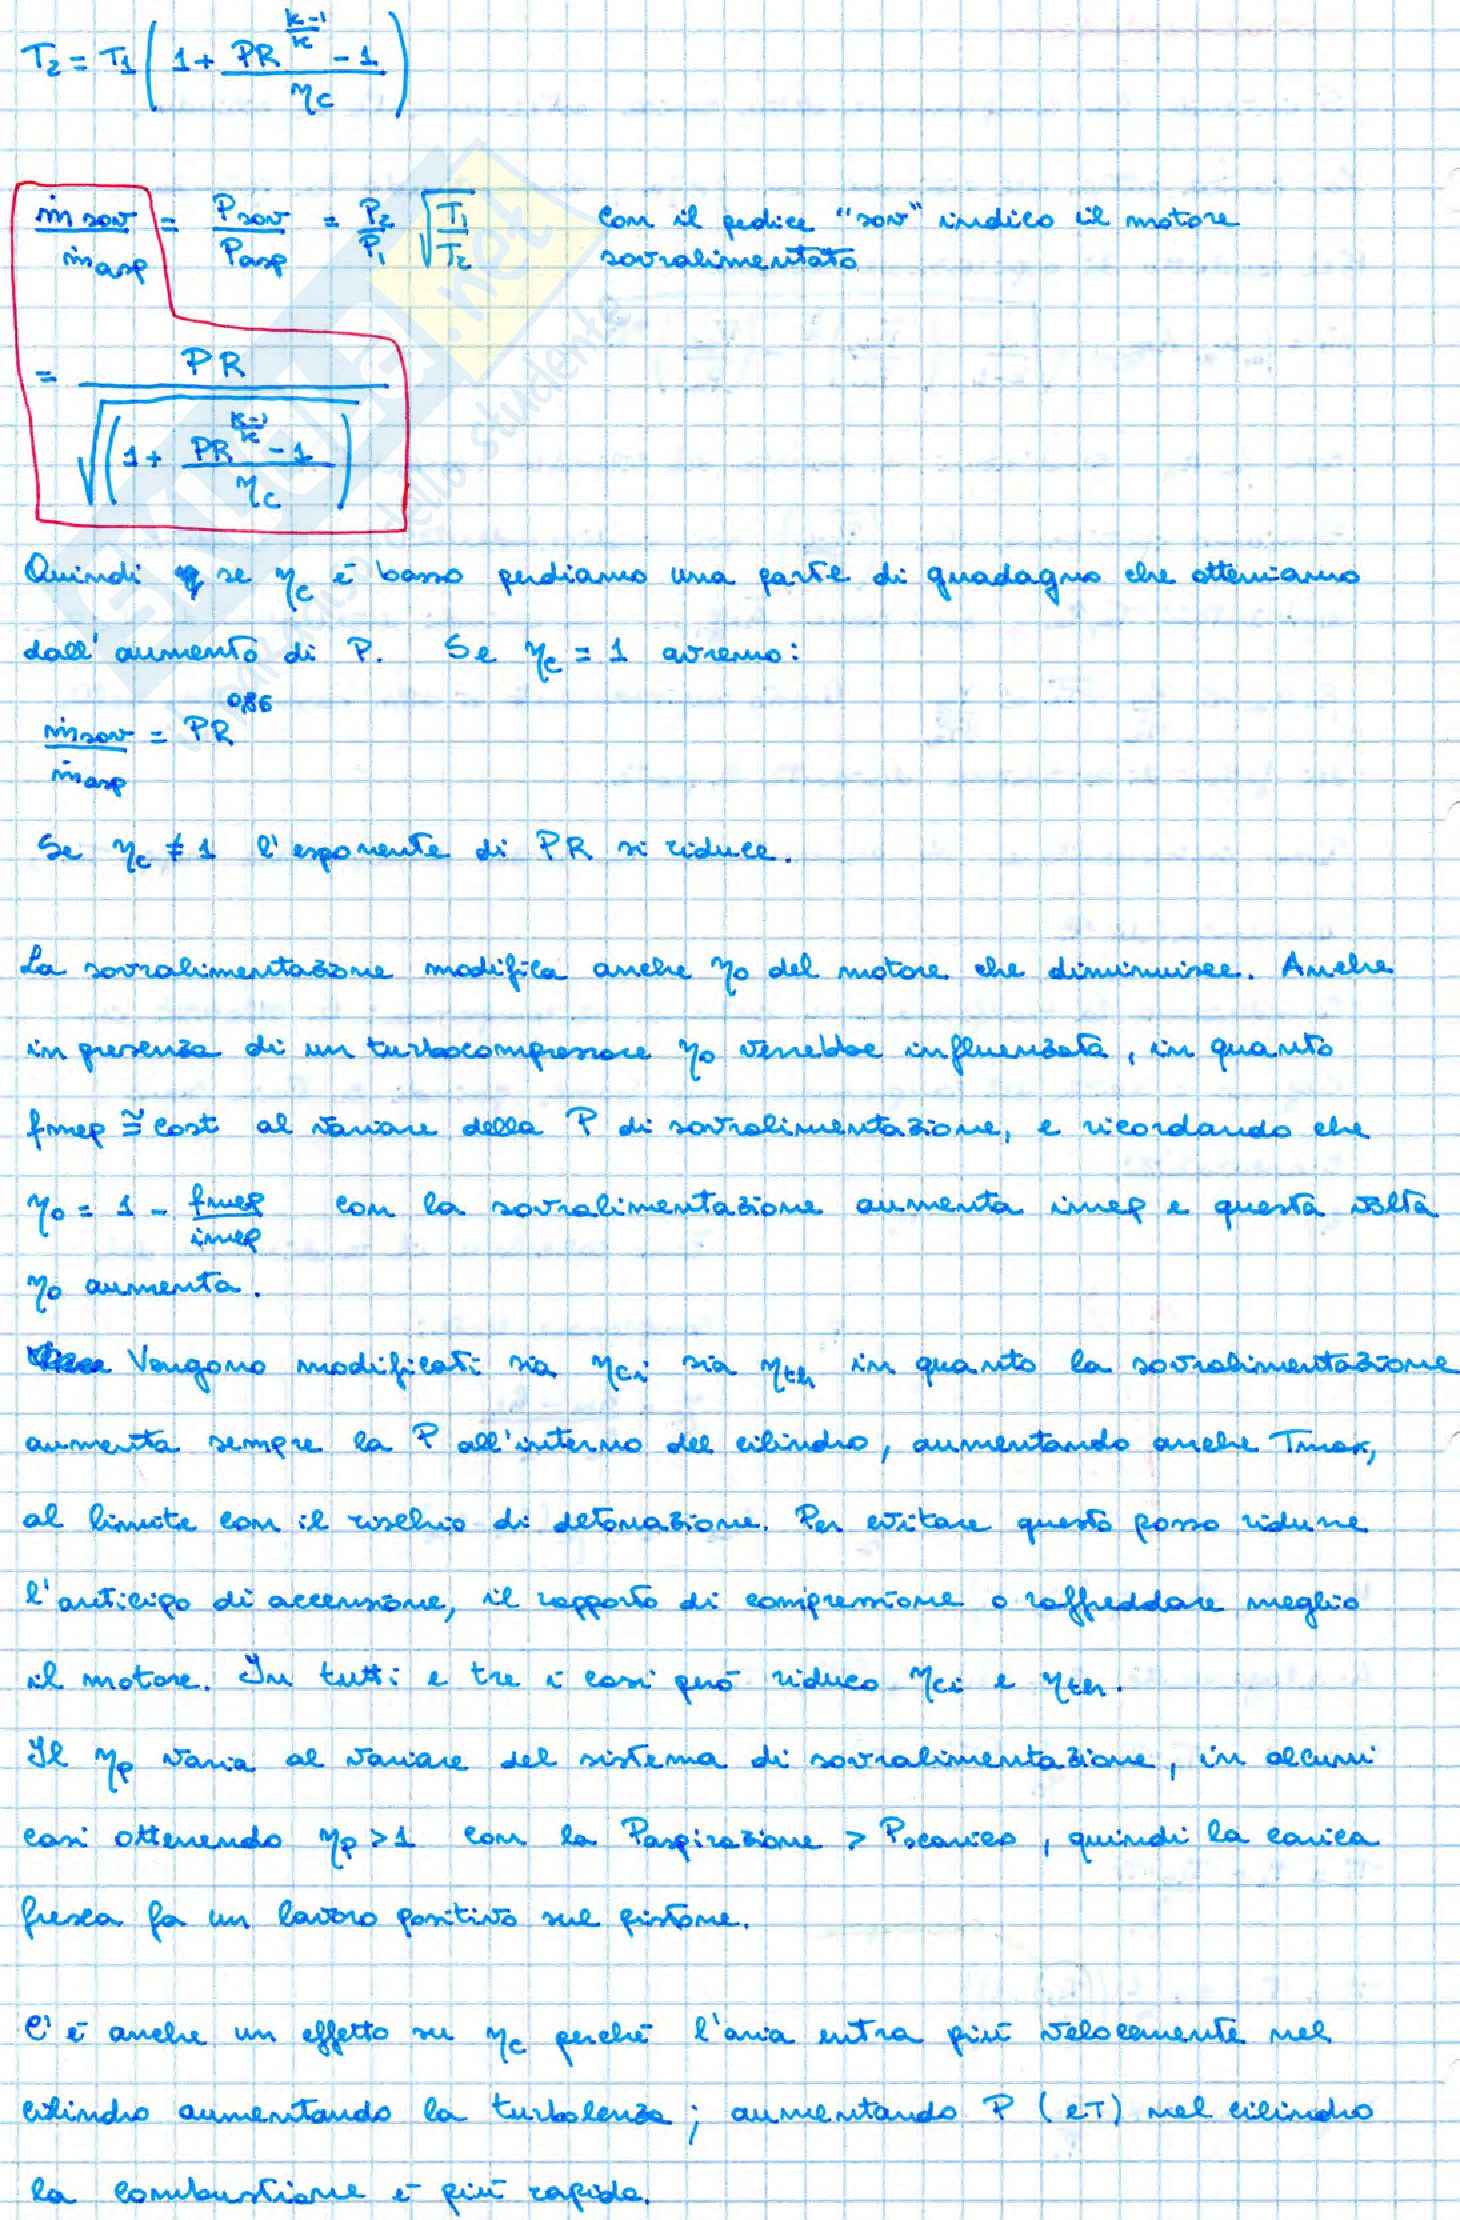 T₂ = T₁ ( 1 + (PR^((k-1)/k) - 1) / ηc )
ṁsov / ṁasp = Psov / Pasp = P₂ / P₁ √(T₁ / T₂) con il pedice "sov" indico il motore
sovralimentato
= PR / √(( 1 + (PR^((k-1)/k) - 1) / ηc ))
Quindi se ηc è basso perdiamo una parte di guadagno che otteniamo
dall'aumento di P. Se ηc = 1 avremo:
ṁsov / ṁasp = PR^0,86
Se ηc ≠ 1 l'esponente di PR si riduce.
La sovralimentazione modifica anche ηo del motore che diminuisce. Anche
in presenza di un turbocompressore ηo verrebbe influenzata, in quanto
fmep ≅ cost al variare della P di sovralimentazione, e ricordando che
ηo = 1 - fmep / imep con la sovralimentazione aumenta imep e questa volta
ηo aumenta.
Vengono modificati sia ηci sia ηth in quanto la sovralimentazione
aumenta sempre la P all'interno del cilindro, aumentando anche Tmax,
al limite con il rischio di detonazione. Per evitare questo posso ridurre
l'anticipo di accensione, il rapporto di compressione o raffreddare meglio
il motore. In tutti e tre i casi però riduco ηci e ηth.
Il ηp varia al variare del sistema di sovralimentazione, in alcuni
casi ottenendo ηp > 1 con la Paspirazione > Pscarico, quindi la carica
fresca fa un lavoro positivo sul pistone.
C'è anche un effetto su ηc perché l'aria entra più velocemente nel
cilindro aumentando la turbolenza; aumentando P (e T) nel cilindro
la combustione è più rapida.